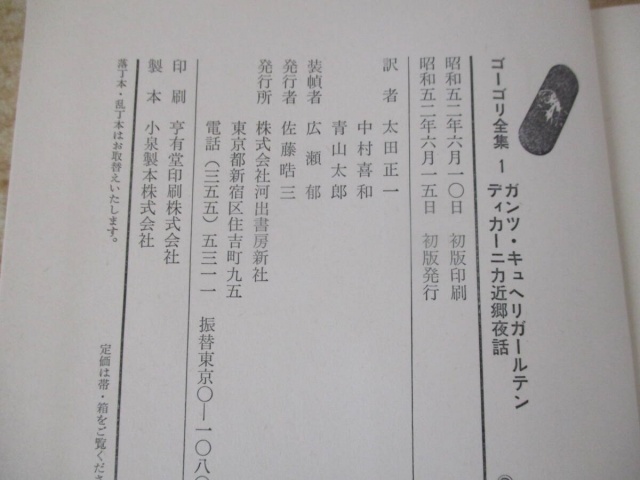 ゴーゴリ全集 1 ガンツ・キュヘリガールテン
ディカーニカ近郷夜話
昭和五二年六月一〇日 初版印刷
昭和五二年六月一五日 初版発行
訳者 太田正一
中村喜和
青山太郎
装幀者 広瀬郁
発行者 佐藤晧三
発行所 株式会社河出書房新社
東京都新宿区住吉町九五
電話(三五五)五三一一 振替東京〇―一〇八〇
印刷 亨有堂印刷株式会社
製本 小泉製本株式会社
落丁本・乱丁本はお取替えいたします。
定価は帯・箱をご覧くださ